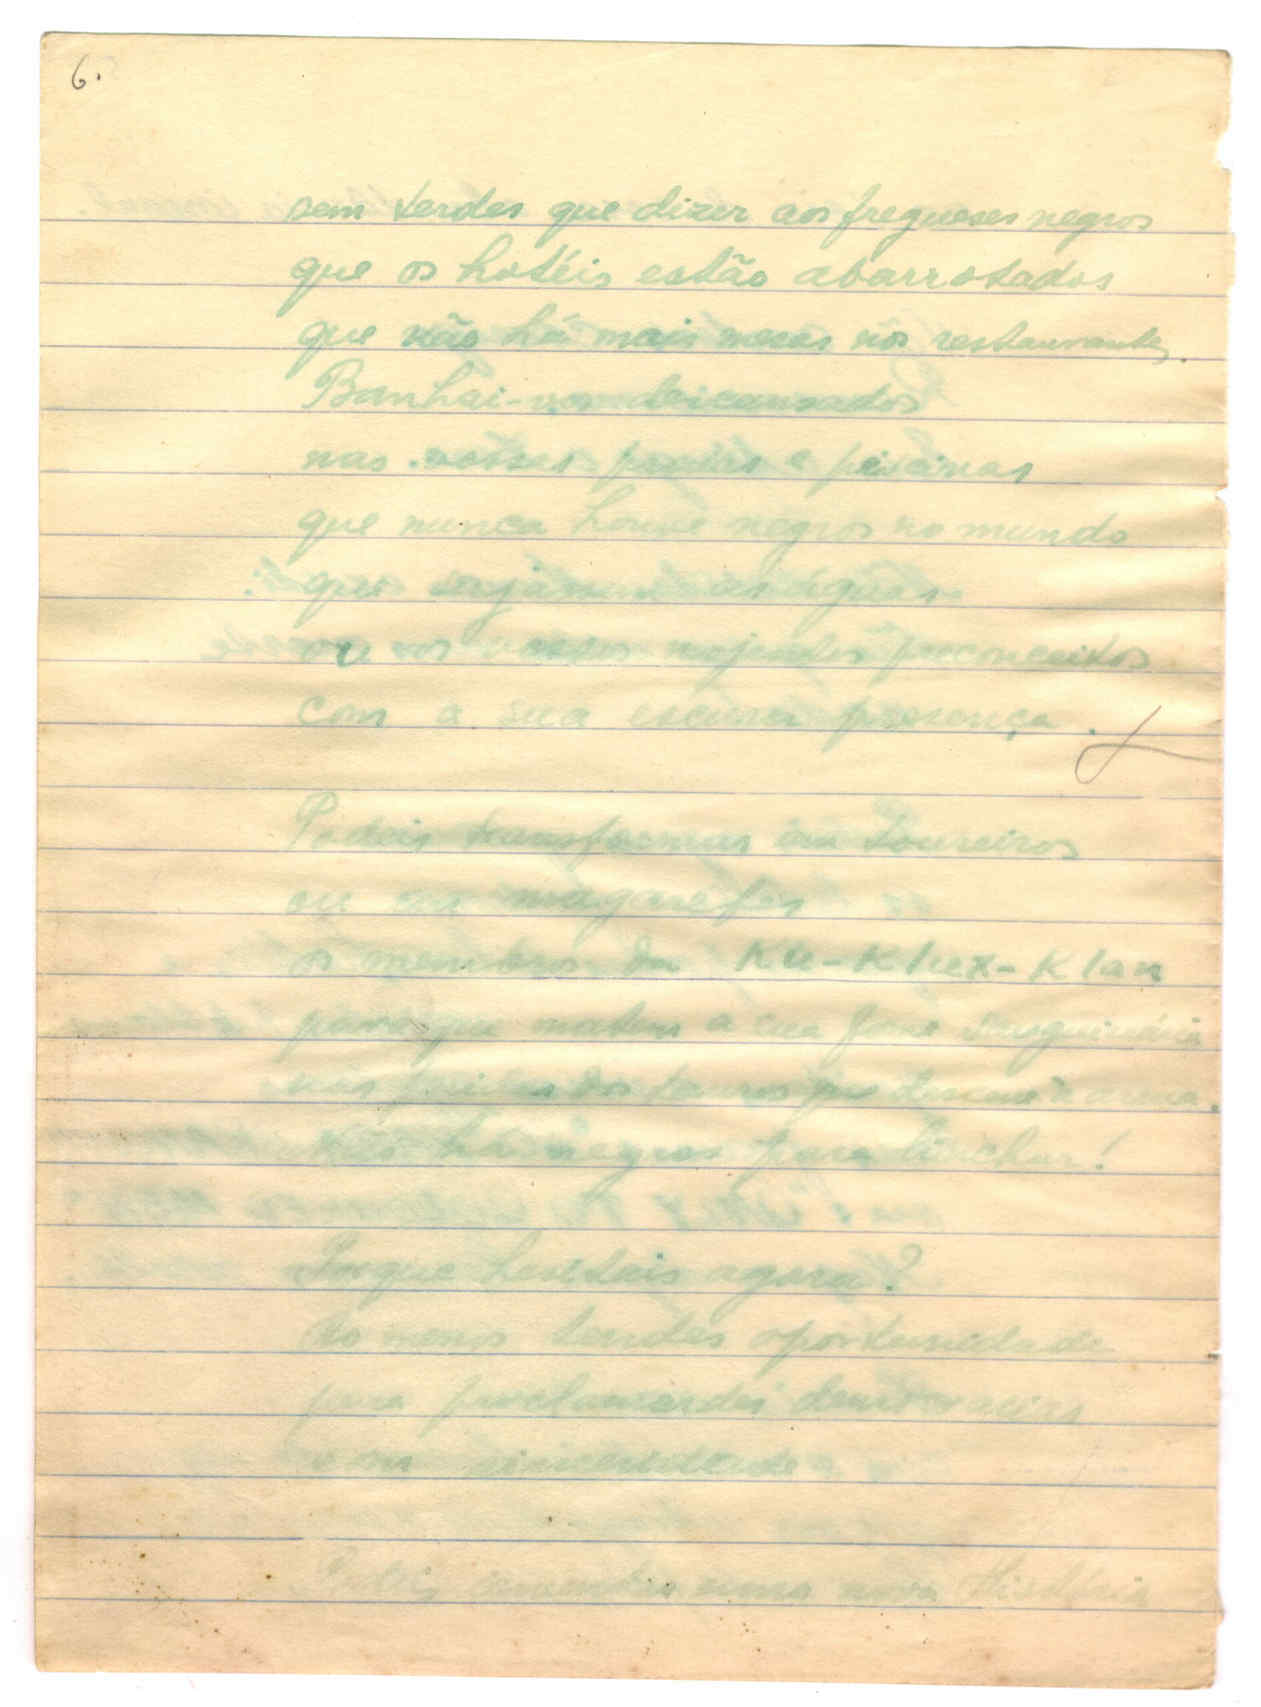 6.
sem terdes que dizer aos fregueses negros
que os hotéis estão abarrotados
que não há mais mesas nos restaurantes.
Banhai-vos descansados
nas vossas praias e piscinas
que nunca houve negros no mundo
que sujassem as águas
ou os vossos nojentos preconceitos
com a sua escura presença.
Podeis transformar em toureiros
ou em magarefes
os membros da Ku-Klux-Klan
para que matem a sua fome sanguinária
nas dos touros que descem à arena.
Não há negros para linchar!
Porque hesitais agora?
Ao menos tendes oportunidade
para proclamardes democracias
com sinceridade.
Podeis inventar uma nova História